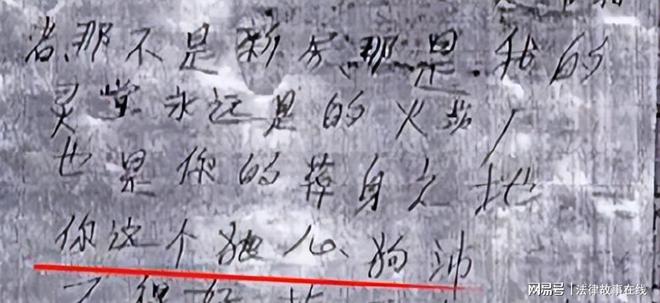 者、那不是新房、那是我的
灵堂永远是的火葬厂
也是你的葬身之地
你这个 心、狗
不得好
网易号 | 法律故事在线